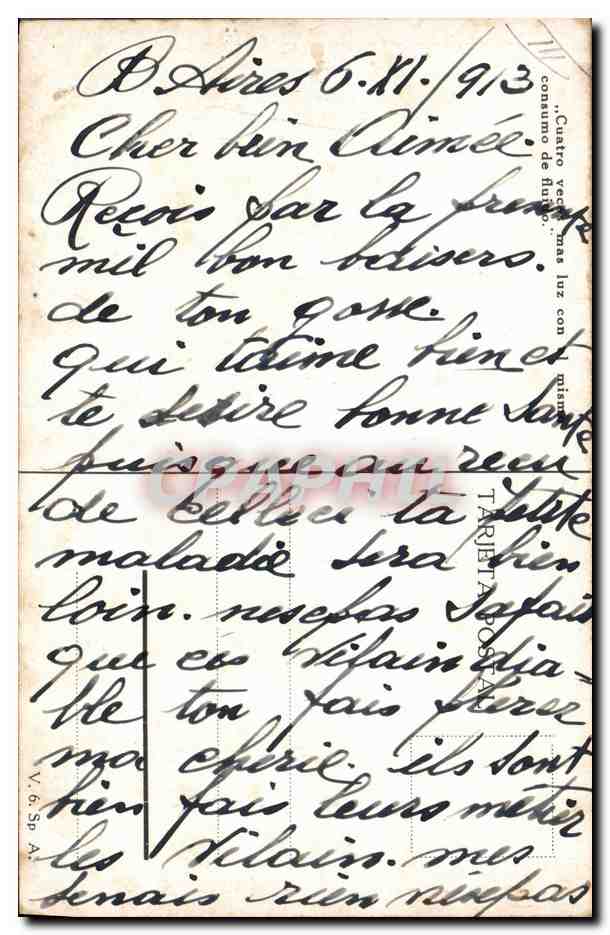 B Aires 6. XI. /913
Cher bien Aimée.
Reçois par la presente
mil bon baisers.
de ton gosse.
qui t'aime bien et
te desire bonne Sante
puisque au recu
de celleci ta petite
maladie sera bien
loin. nesepas Safais
que ces Vilain dia-
ble ton fais
ma cherie. ils sont
bien fais leurs métier
les Vilain. mes
senais rien nésepas
„Cuatro veces mas luz con el mismo
consumo de fluido..
TARJETA POSTAL
V. 6. Sp A.
CPAPHIL